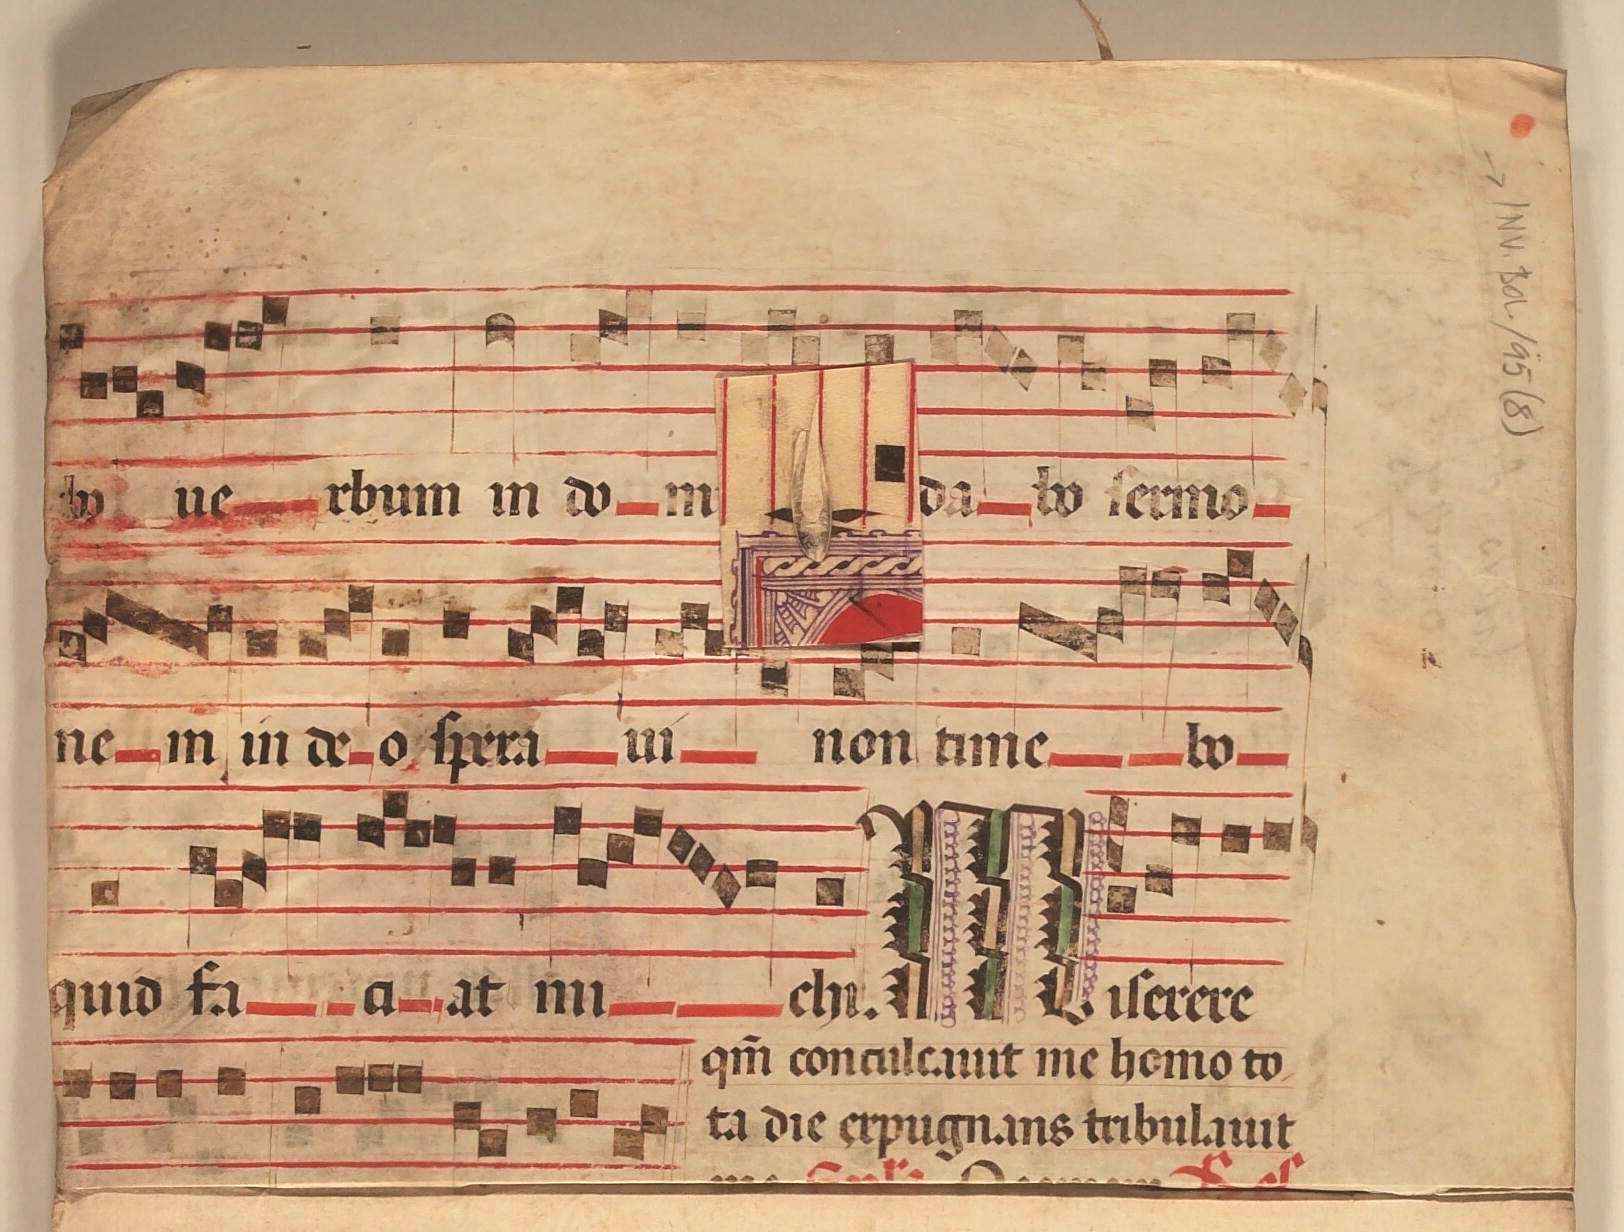 bo ue rbum in do m da bo sermo
ne m in de o spera ui non time bo
quid fa ci at mi chi. Miserere
qm̄ conculcauit me homo to
ta die expugnans tribulauit
me
→ INV. Bol./95(8)